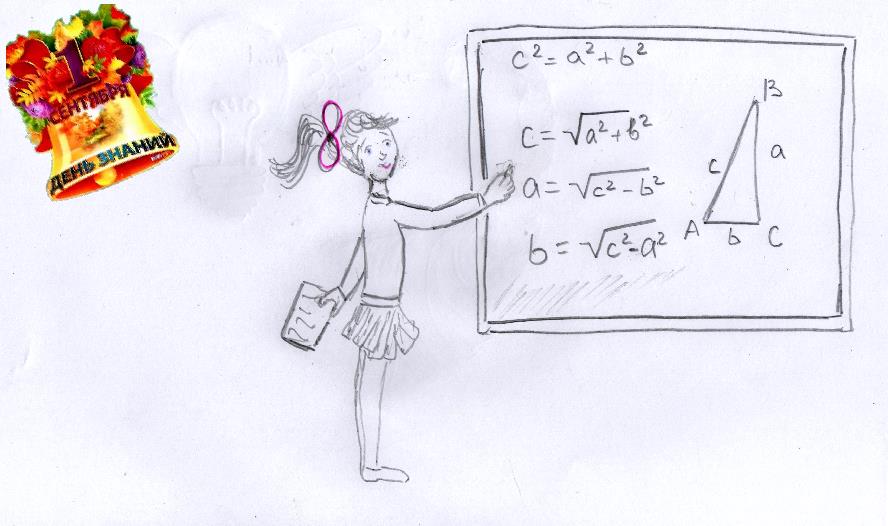 1
СЕНТЯБРЯ
ДЕНЬ ЗНАНИЙ
c² = a² + b²
c = √a² + b²
a = √c² - b²
b = √c² - a²
B
c
a
A
b
C